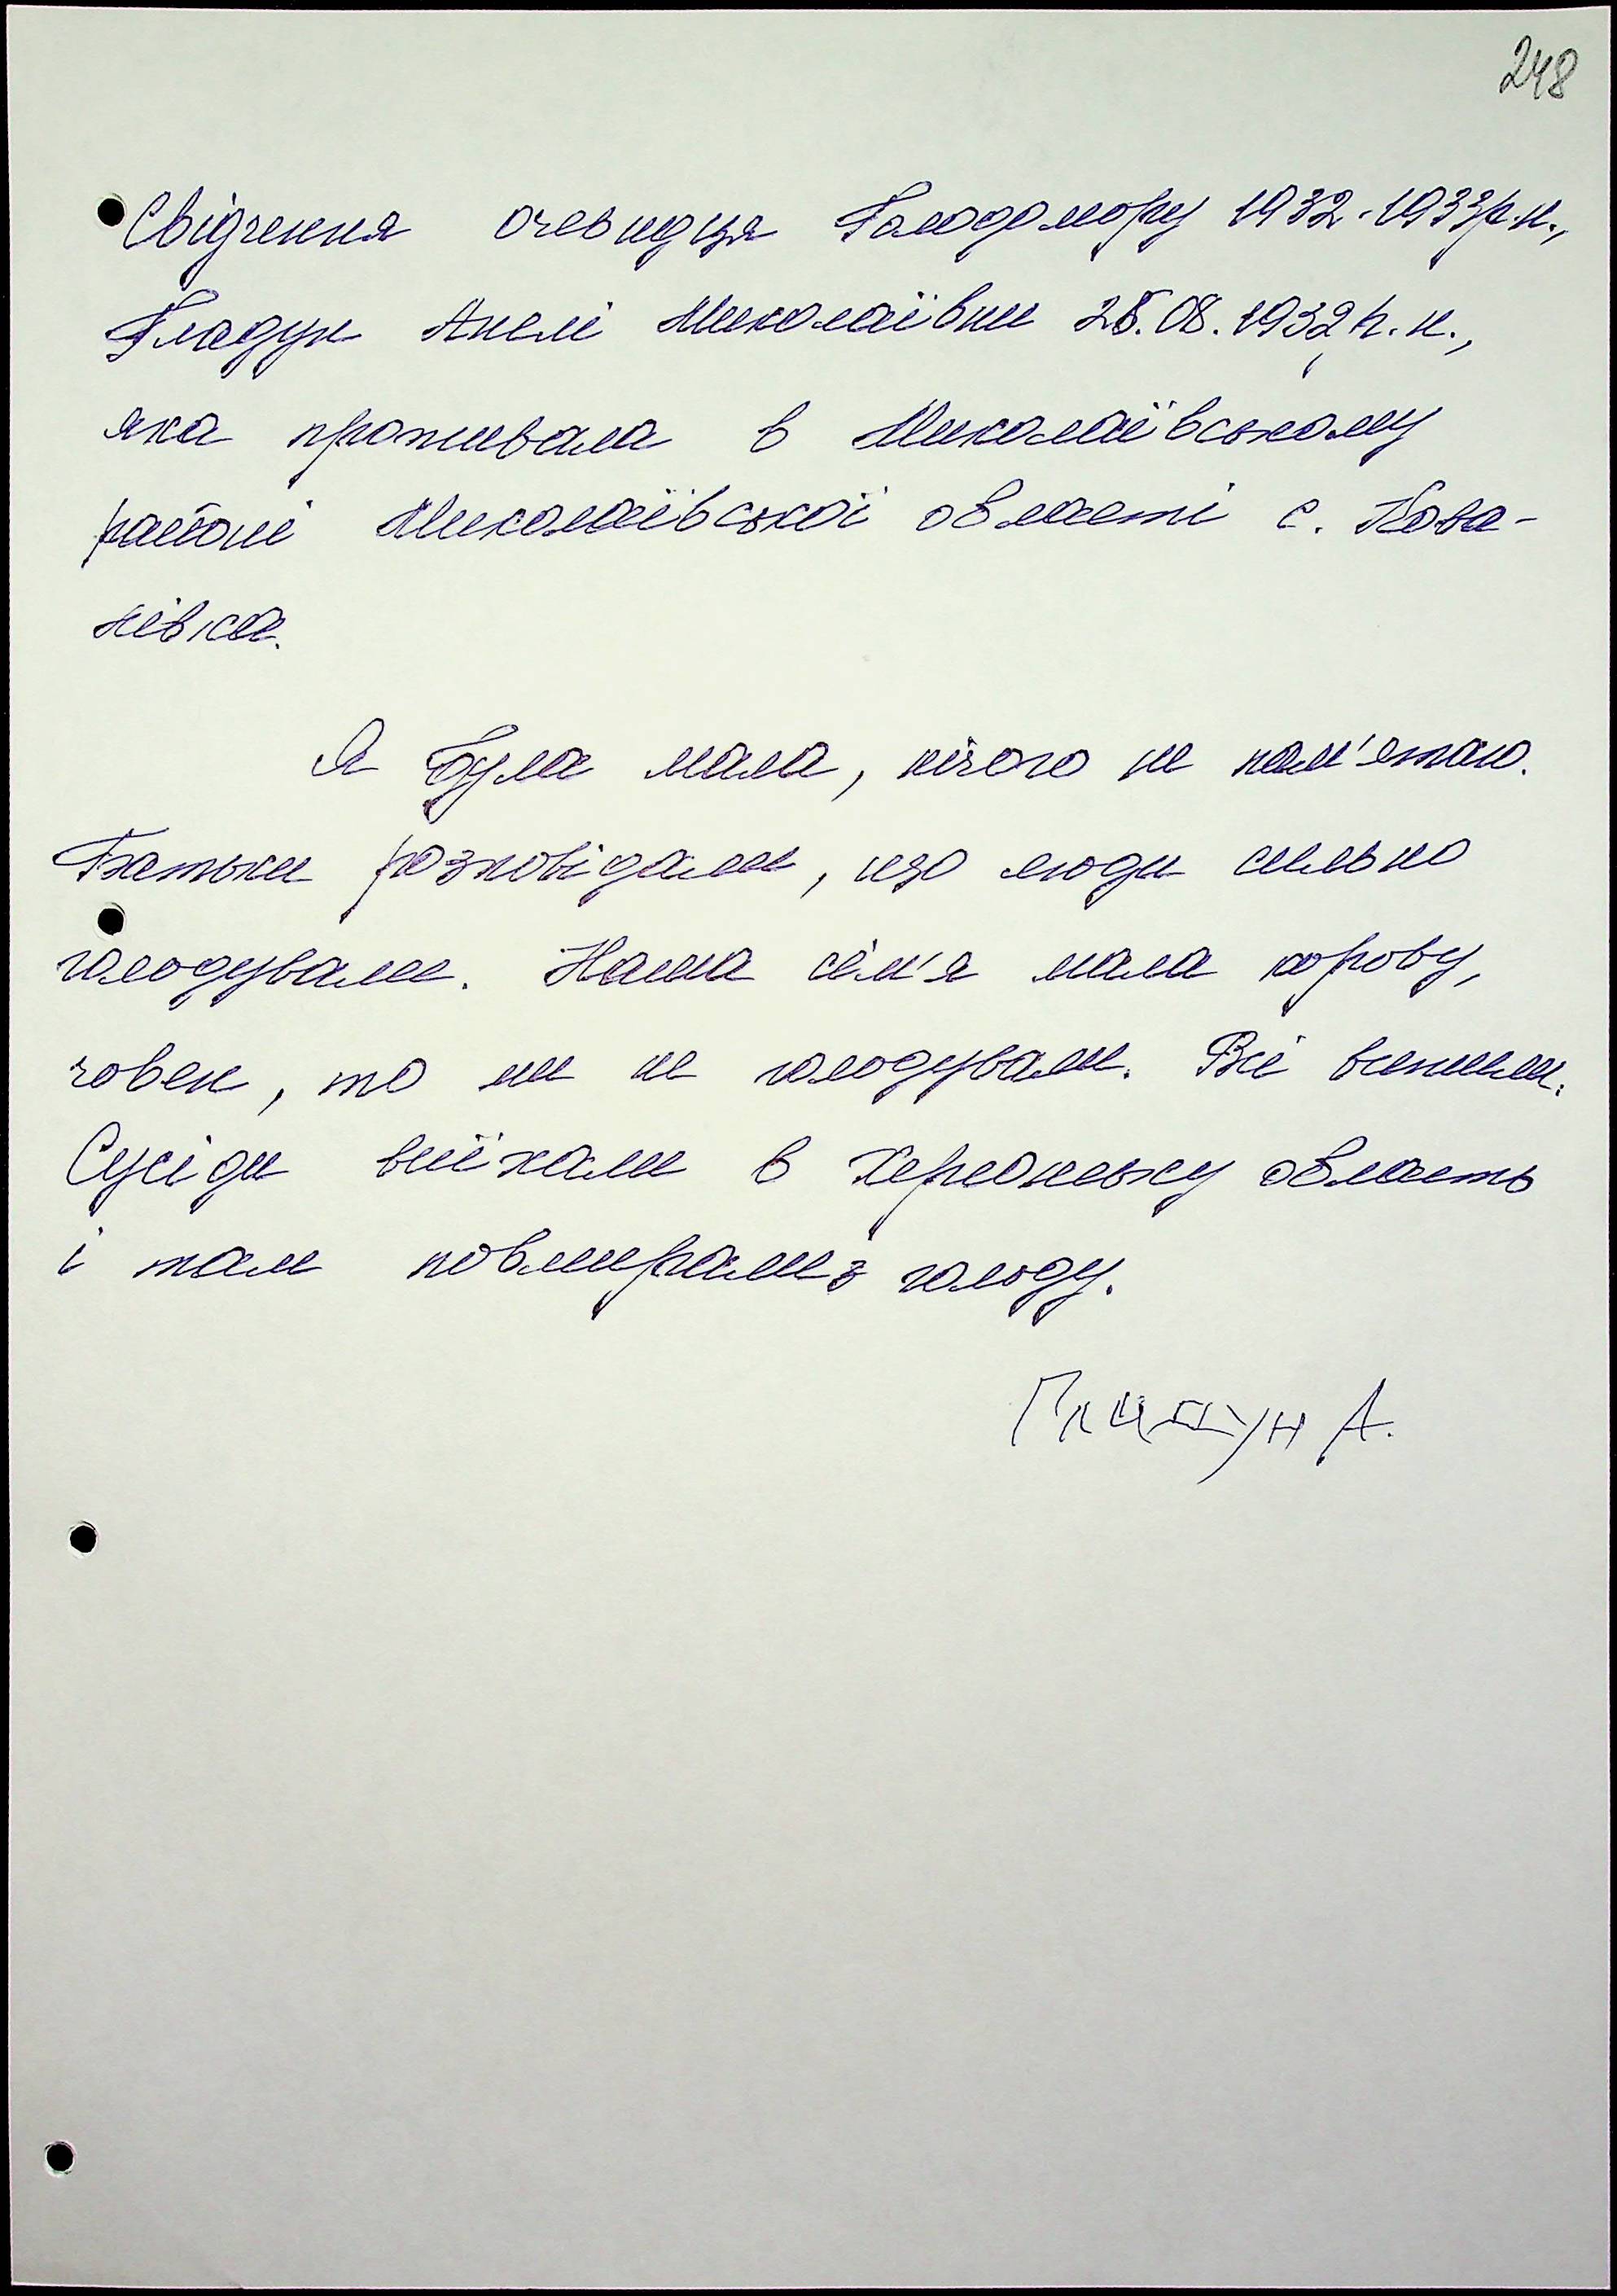 248
Свідчення очевидця Голодомору 1932-1933р.н.,
Гладун Анелі Миколаївни 28.08.1932 р.н.,
яка проживала в Миколаївському
районі Миколаївської області с. Кова-
лівка.
Я була мала, нічого не пам'ятаю.
Батьки розповідали, що люди сильно
голодували. Наша сім'я мала корову,
човен, то ми не голодували. Всі вижили.
Сусіди виїхали в Херсонську область
і там повмирали з голоду.
Гладун А.